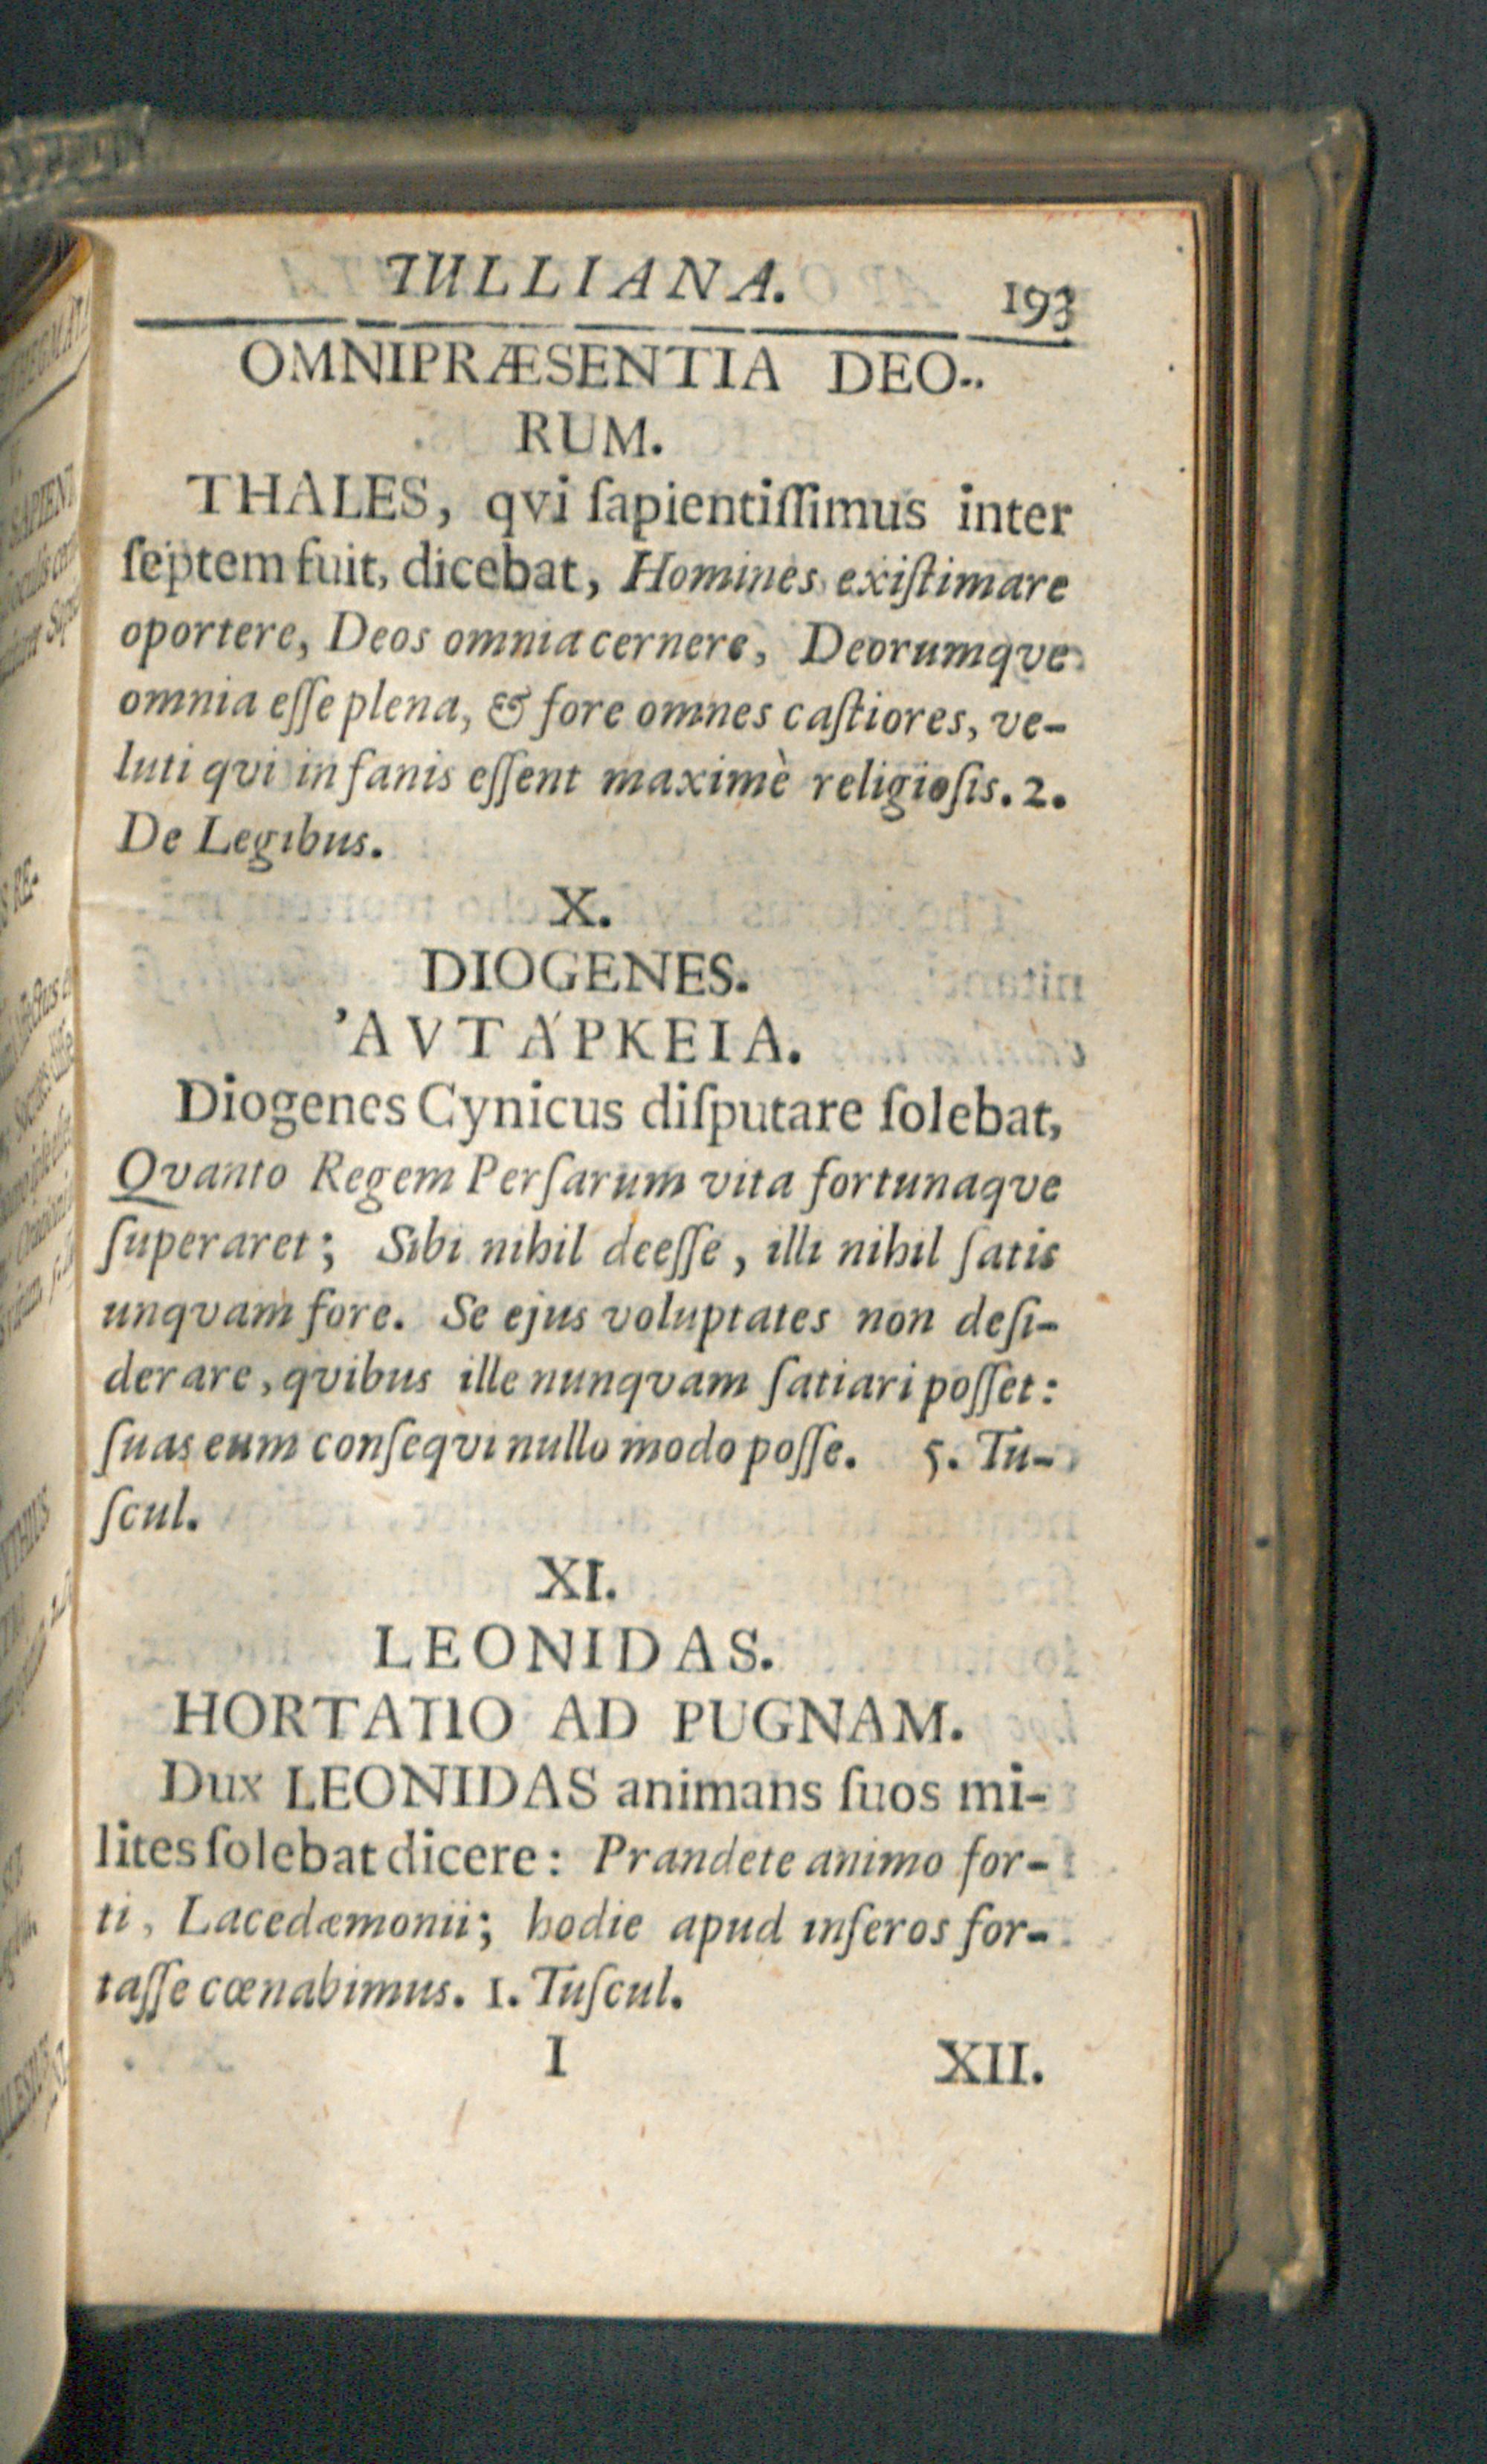 TULLIANA. 193
OMNIPRÆSENTIA DEO-
RUM.
THALES, qvi ſapientiſſimus inter
ſeptem fuit, dicebat, Homines exiſtimare
oportere, Deos omnia cernere, Deorumqve
omnia eſſe plena, & fore omnes caſtiores, ve-
luti qvi in fanis eſſent maximè religioſis. 2.
De Legibus.
X.
DIOGENES.
ʼΑΥΤΆΡΚΕΙΑ.
Diogenes Cynicus diſputare ſolebat,
Qvanto Regem Perſarum vita fortunaqve
ſuperaret; Sibi nihil deeſſe, illi nihil ſatis
unqvam fore. Se ejus voluptates non deſi-
derare, qvibus ille nunqvam ſatiari poſſet:
ſuas eum conſeqvi nullo modo poſſe. 5. Tu-
ſcul.
XI.
LEONIDAS.
HORTATIO AD PUGNAM.
Dux LEONIDAS animans ſuos mi-
lites ſolebat dicere: Prandete animo for-
ti, Lacedæmonii; hodie apud inferos for-
taſſe cœnabimus. 1. Tuſcul.
I XII.